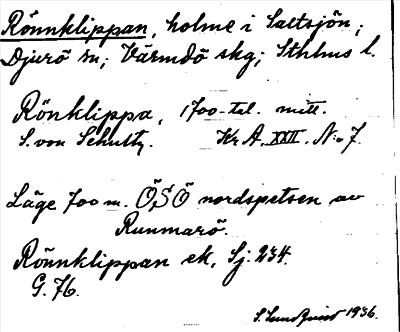 Rönnklippan, holme i Saltsjön;
Djurö sn; Värmdö skg; Sthlms l.
Rönklippa, 1700-tal. mitt.
S. von Schultz. Kr. A. XXII. N:o 7.
Läge 700 m. ÖSÖ nordspetsen av
Runmarö.
Rönnklippan ek. Sj. 234.
G. 76.
S. Lundquist 1936.